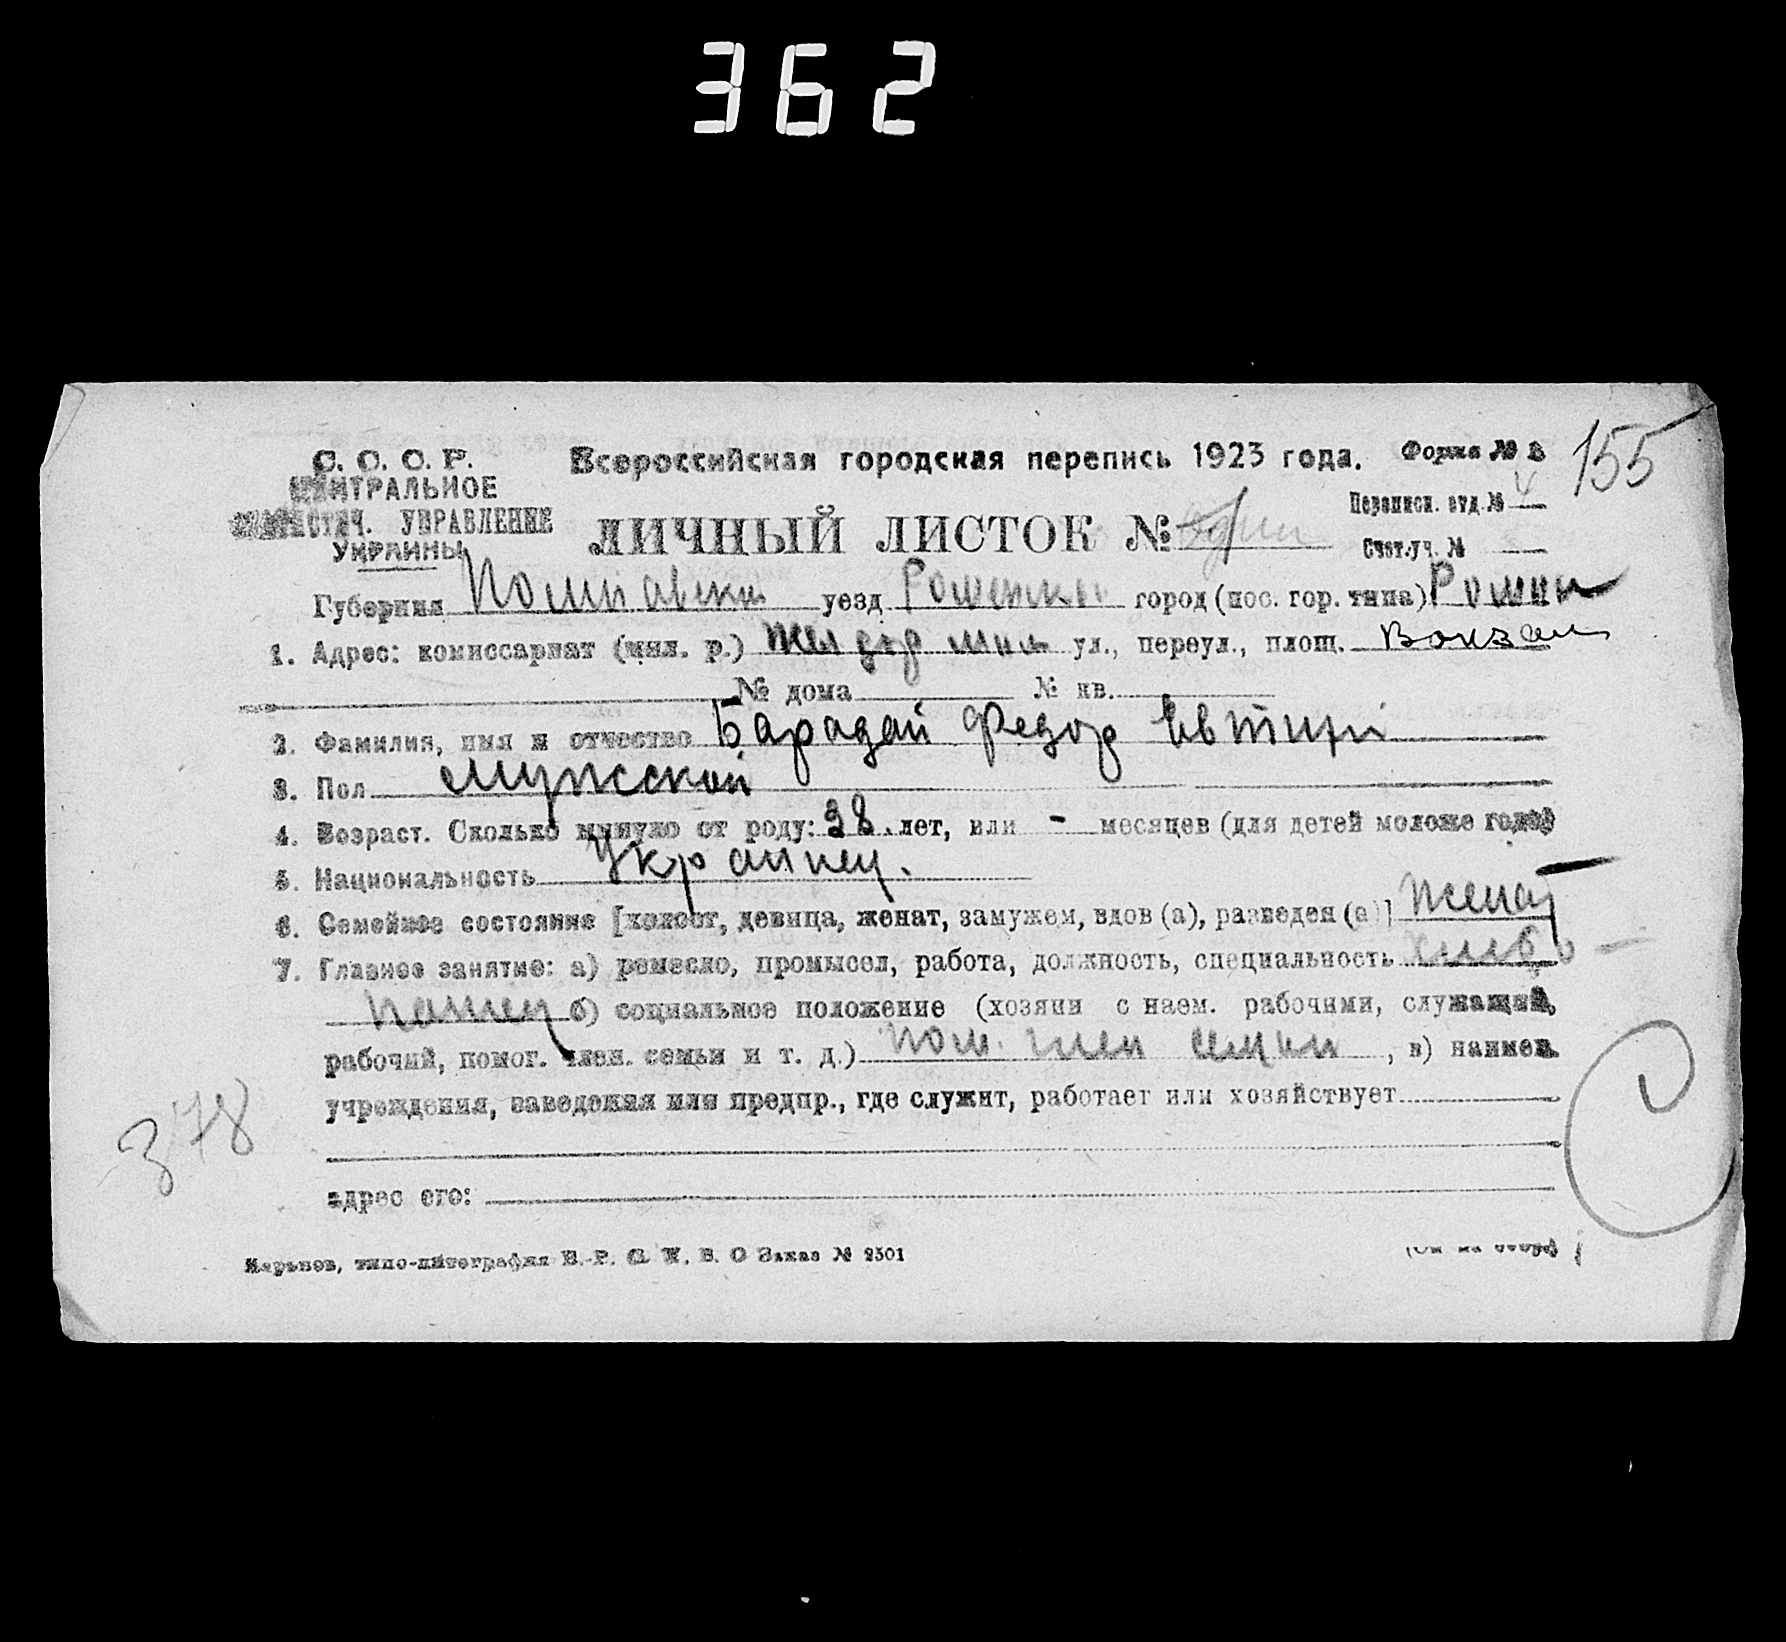 362
С. С. С. Р. Всероссийская городская перепись 1923 года. Форма № 2 155
ЦЕНТРАЛЬНОЕ
СТАТИСТИЧ. УПРАВЛЕНИЕ
УКРАИНЫ
Переписн. отд. № 4
ЛИЧНЫЙ ЛИСТОК №
Счетн.уч. №
Губерния Полтавска уезд Роменски город (пос. гор. типа) Ромни
1. Адрес: комиссариат (мил. р.) Жел дор мил ул., переул., площ. Вокзал
№ дома № кв.
2. Фамилия, имя и отчество Барадай Федор Евтихи
3. Пол мужской
4. Возраст. Сколько минуло от роду: 38 лет, или - месяцев (для детей моложе года)
5. Национальность Украинец.
6. Семейное состояние [холост, девица, женат, замужем, вдов (а), разведен (а)] женат
7. Главное занятие: а) ремесло, промысел, работа, должность, специальность хлебо-
пашец б) социальное положение (хозяин с наем. рабочими, служащий,
рабочий, помог. член. семьи и т. д.) пом. член семьи, в) наимен.
учреждения, заведения или предпр., где служит, работает или хозяйствует
378
адрес его:
Харьков, типо-литография В. О Заказ № 2501